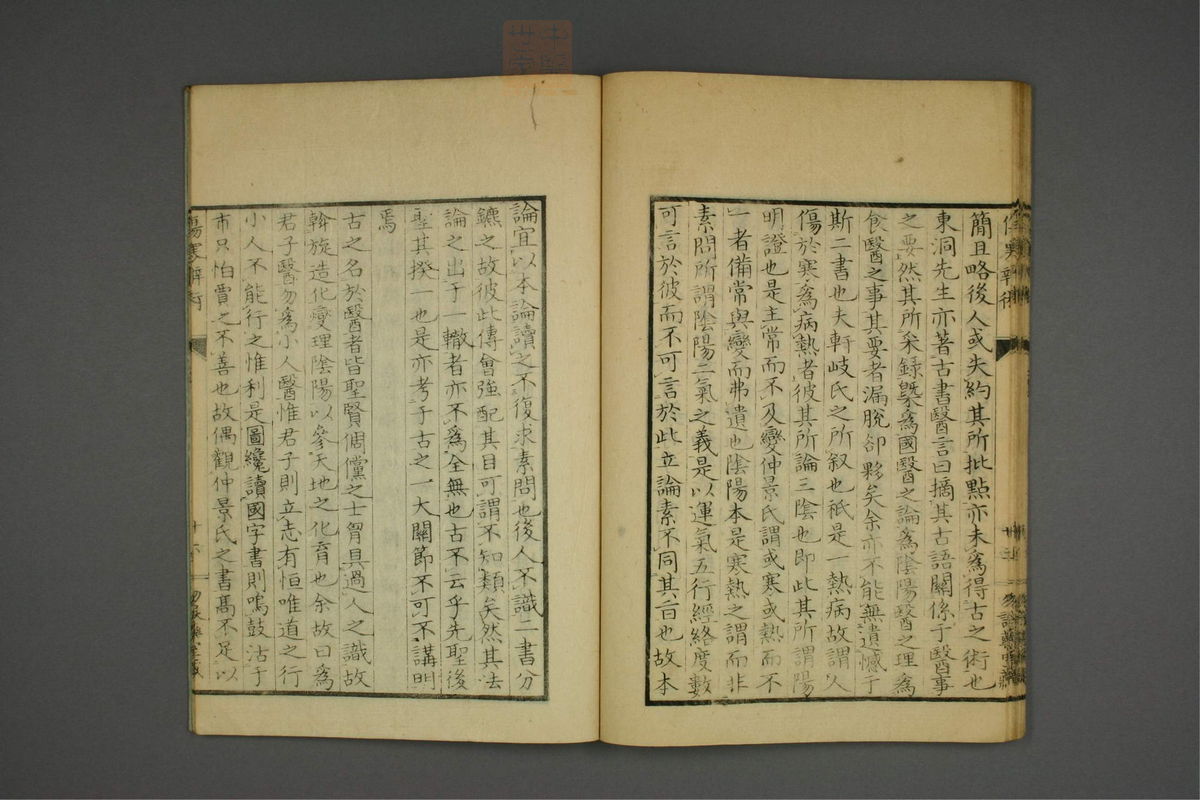 簡且略後人或失約其所批點亦未爲得古之術也
東洞先生亦著古書醫言曰摘其古語關係于醫事
之要然其所采錄槩爲國醫之論爲陰陽醫之理爲
食醫之事其要者漏脫卻夥矣余亦不能無遺憾于
斯二書也夫軒岐氏之所叙也祇是一熱病故謂人
傷於寒爲病熱者彼其所論三陰也卽此其所謂陽
明證也是主常而不及變仲景氏謂或寒或熱而不
一者備常與變而弗遺也陰陽本是寒熱之謂而非
素問所謂陰陽二氣之義是以運氣五行經絡度數
可言於彼而不可言於此立論素不同其旨也故本
論宜以本論讀之不復求素問也後人不識二書分
鑣之故彼此傳會強配其目可謂不知類矣然其法
論之出于一轍者亦不爲全無也古不云乎先聖後
聖其揆一也是亦考于古之一大關節不可不講明
焉
古之名於醫者皆聖賢倜儻之士胷具過人之識故
斡旋造化燮理陰陽以參天地之化育也余故曰爲
君子醫勿爲小人醫惟君子則立志有恒唯道之行
小人不能行之惟利是圖纔讀國字書則鳴鼓沽于
市只怕賈之不善也故偶觀仲景氏之書髙不足以
傷寒辨術
十六